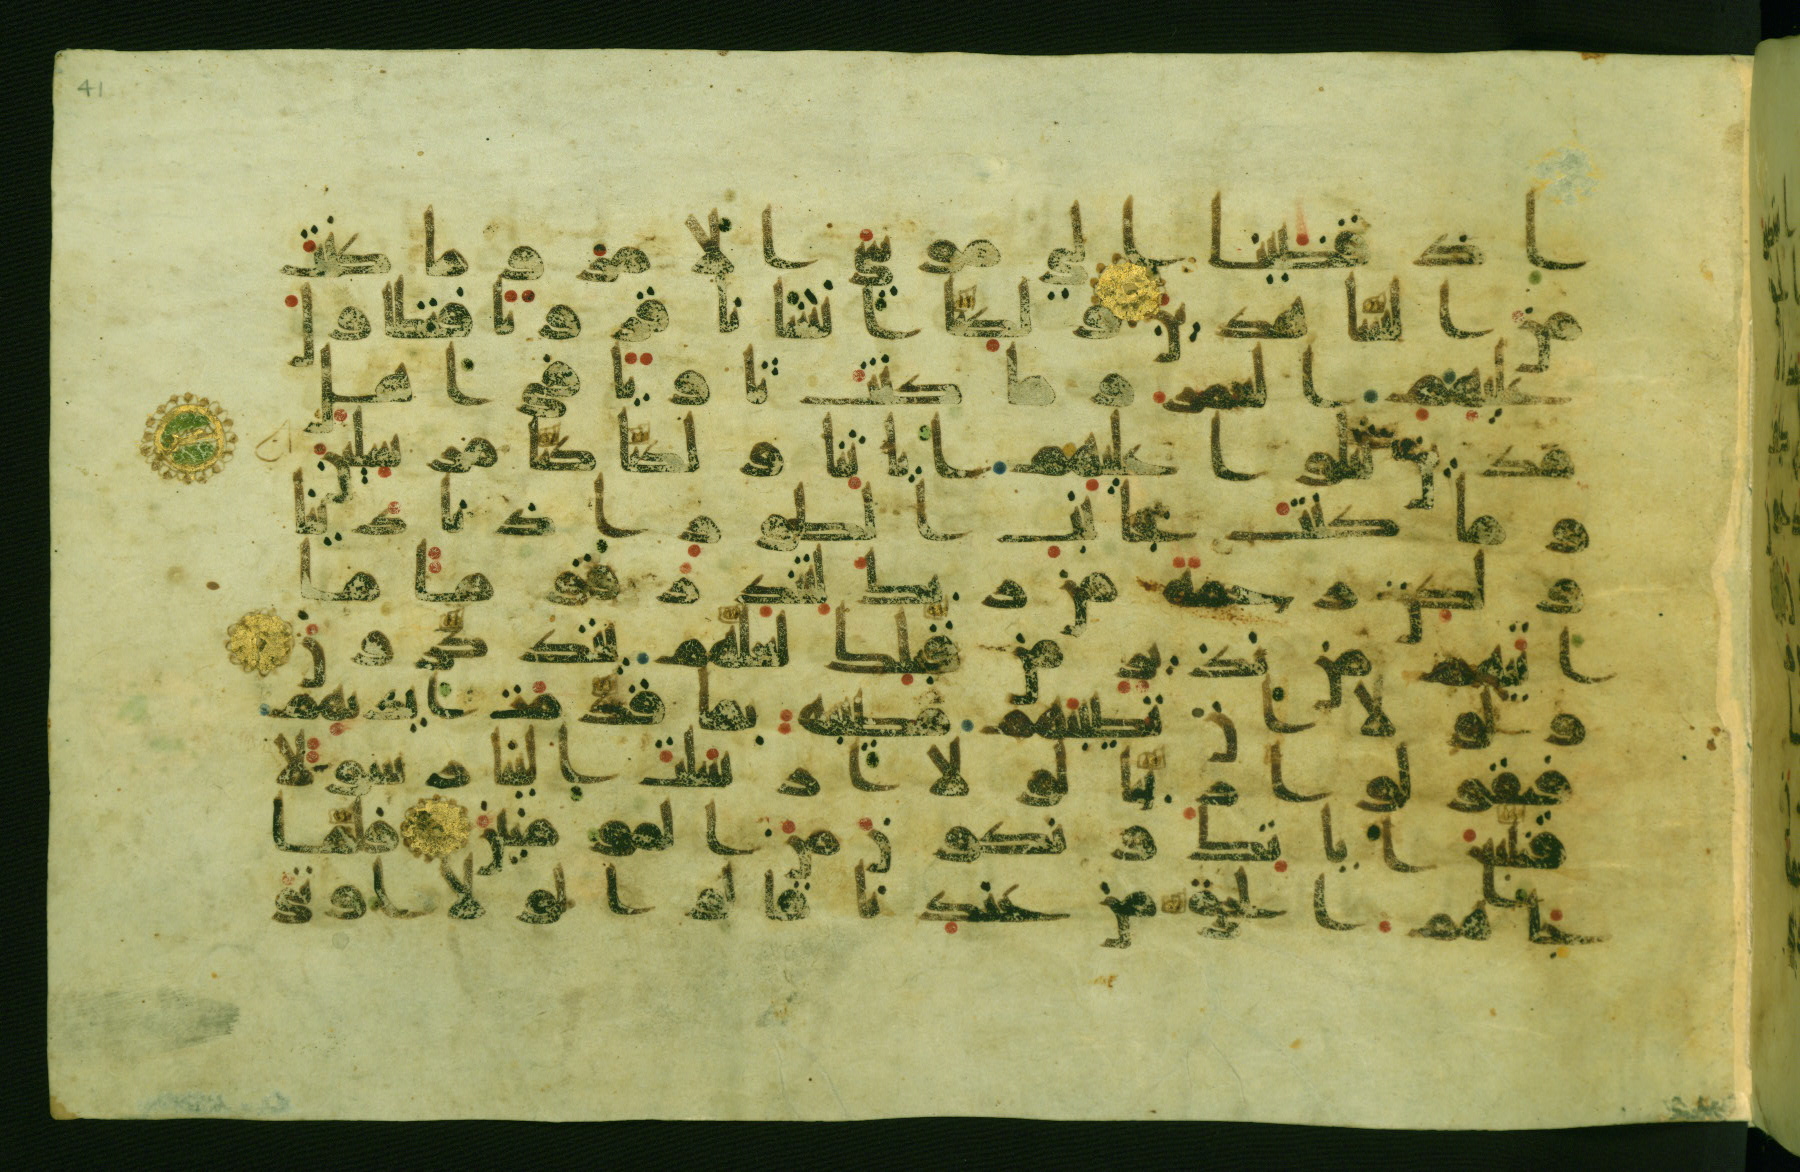 41
اذ قضينا الى موسى الامر وما كنت
من الشاهدين ولكنا انشانا قرونا فتطاول
عليهم العمر وما كنت ثاويا في اهل
مدين تتلوا عليهم اياتنا ولكنا كنا مرسلين
وما كنت بجانب الطور اذ نادينا
ولكن رحمة من ربك لتنذر قوما ما
اتيهم من نذير من قبلك لعلهم يتذكرون
ولولا ان تصيبهم مصيبة بما قدمت ايديهم
فيقولوا ربنا لولا ارسلت الينا رسولا
فنتبع اياتك ونكون من المومنين فلما
جاهم الحق من عندنا قالوا لولا اوتي